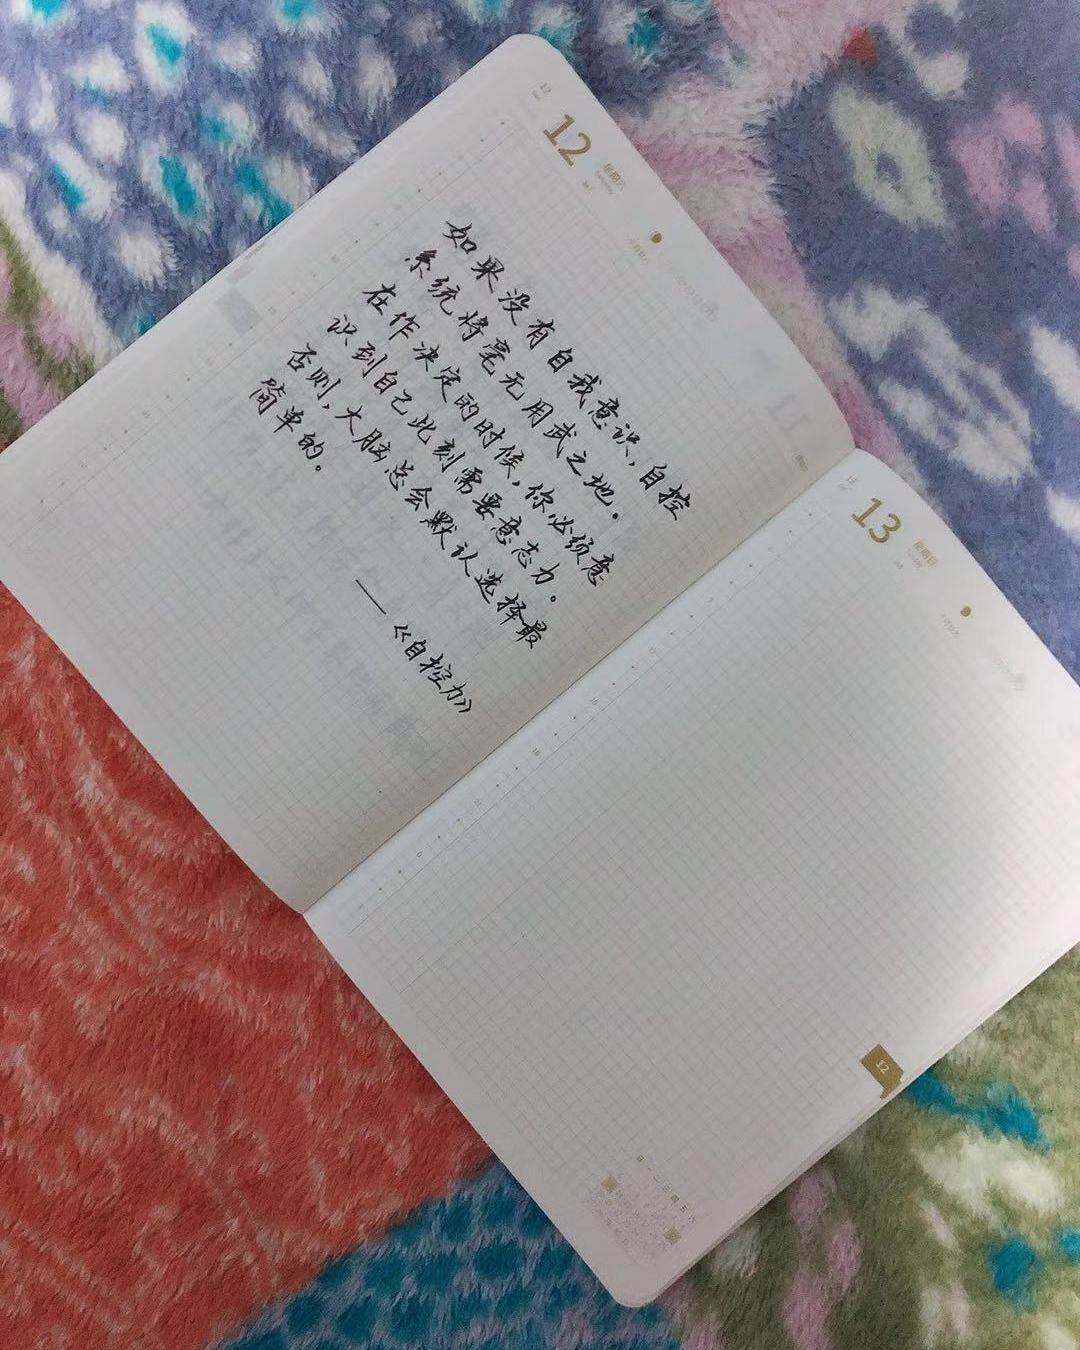 12
12
星期六
如果没有自我意识，自控
系统将毫无用武之地。
在作决定的时候，你必须意
识到自己此刻需要意志力。
否则，大脑总会默认选择最
简单的。
——《自控力》
12
13
星期日
12
日 一 二 三 四 五 六